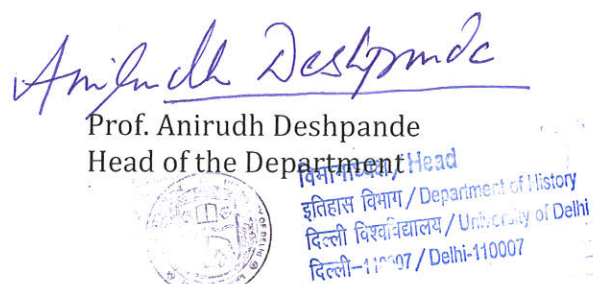 Anirudh Deshpande
Prof. Anirudh Deshpande
Head of the Department
विभागाध्यक्ष / Head
इतिहास विभाग / Department of History
दिल्ली विश्वविद्यालय / University of Delhi
दिल्ली-110007 / Delhi-110007